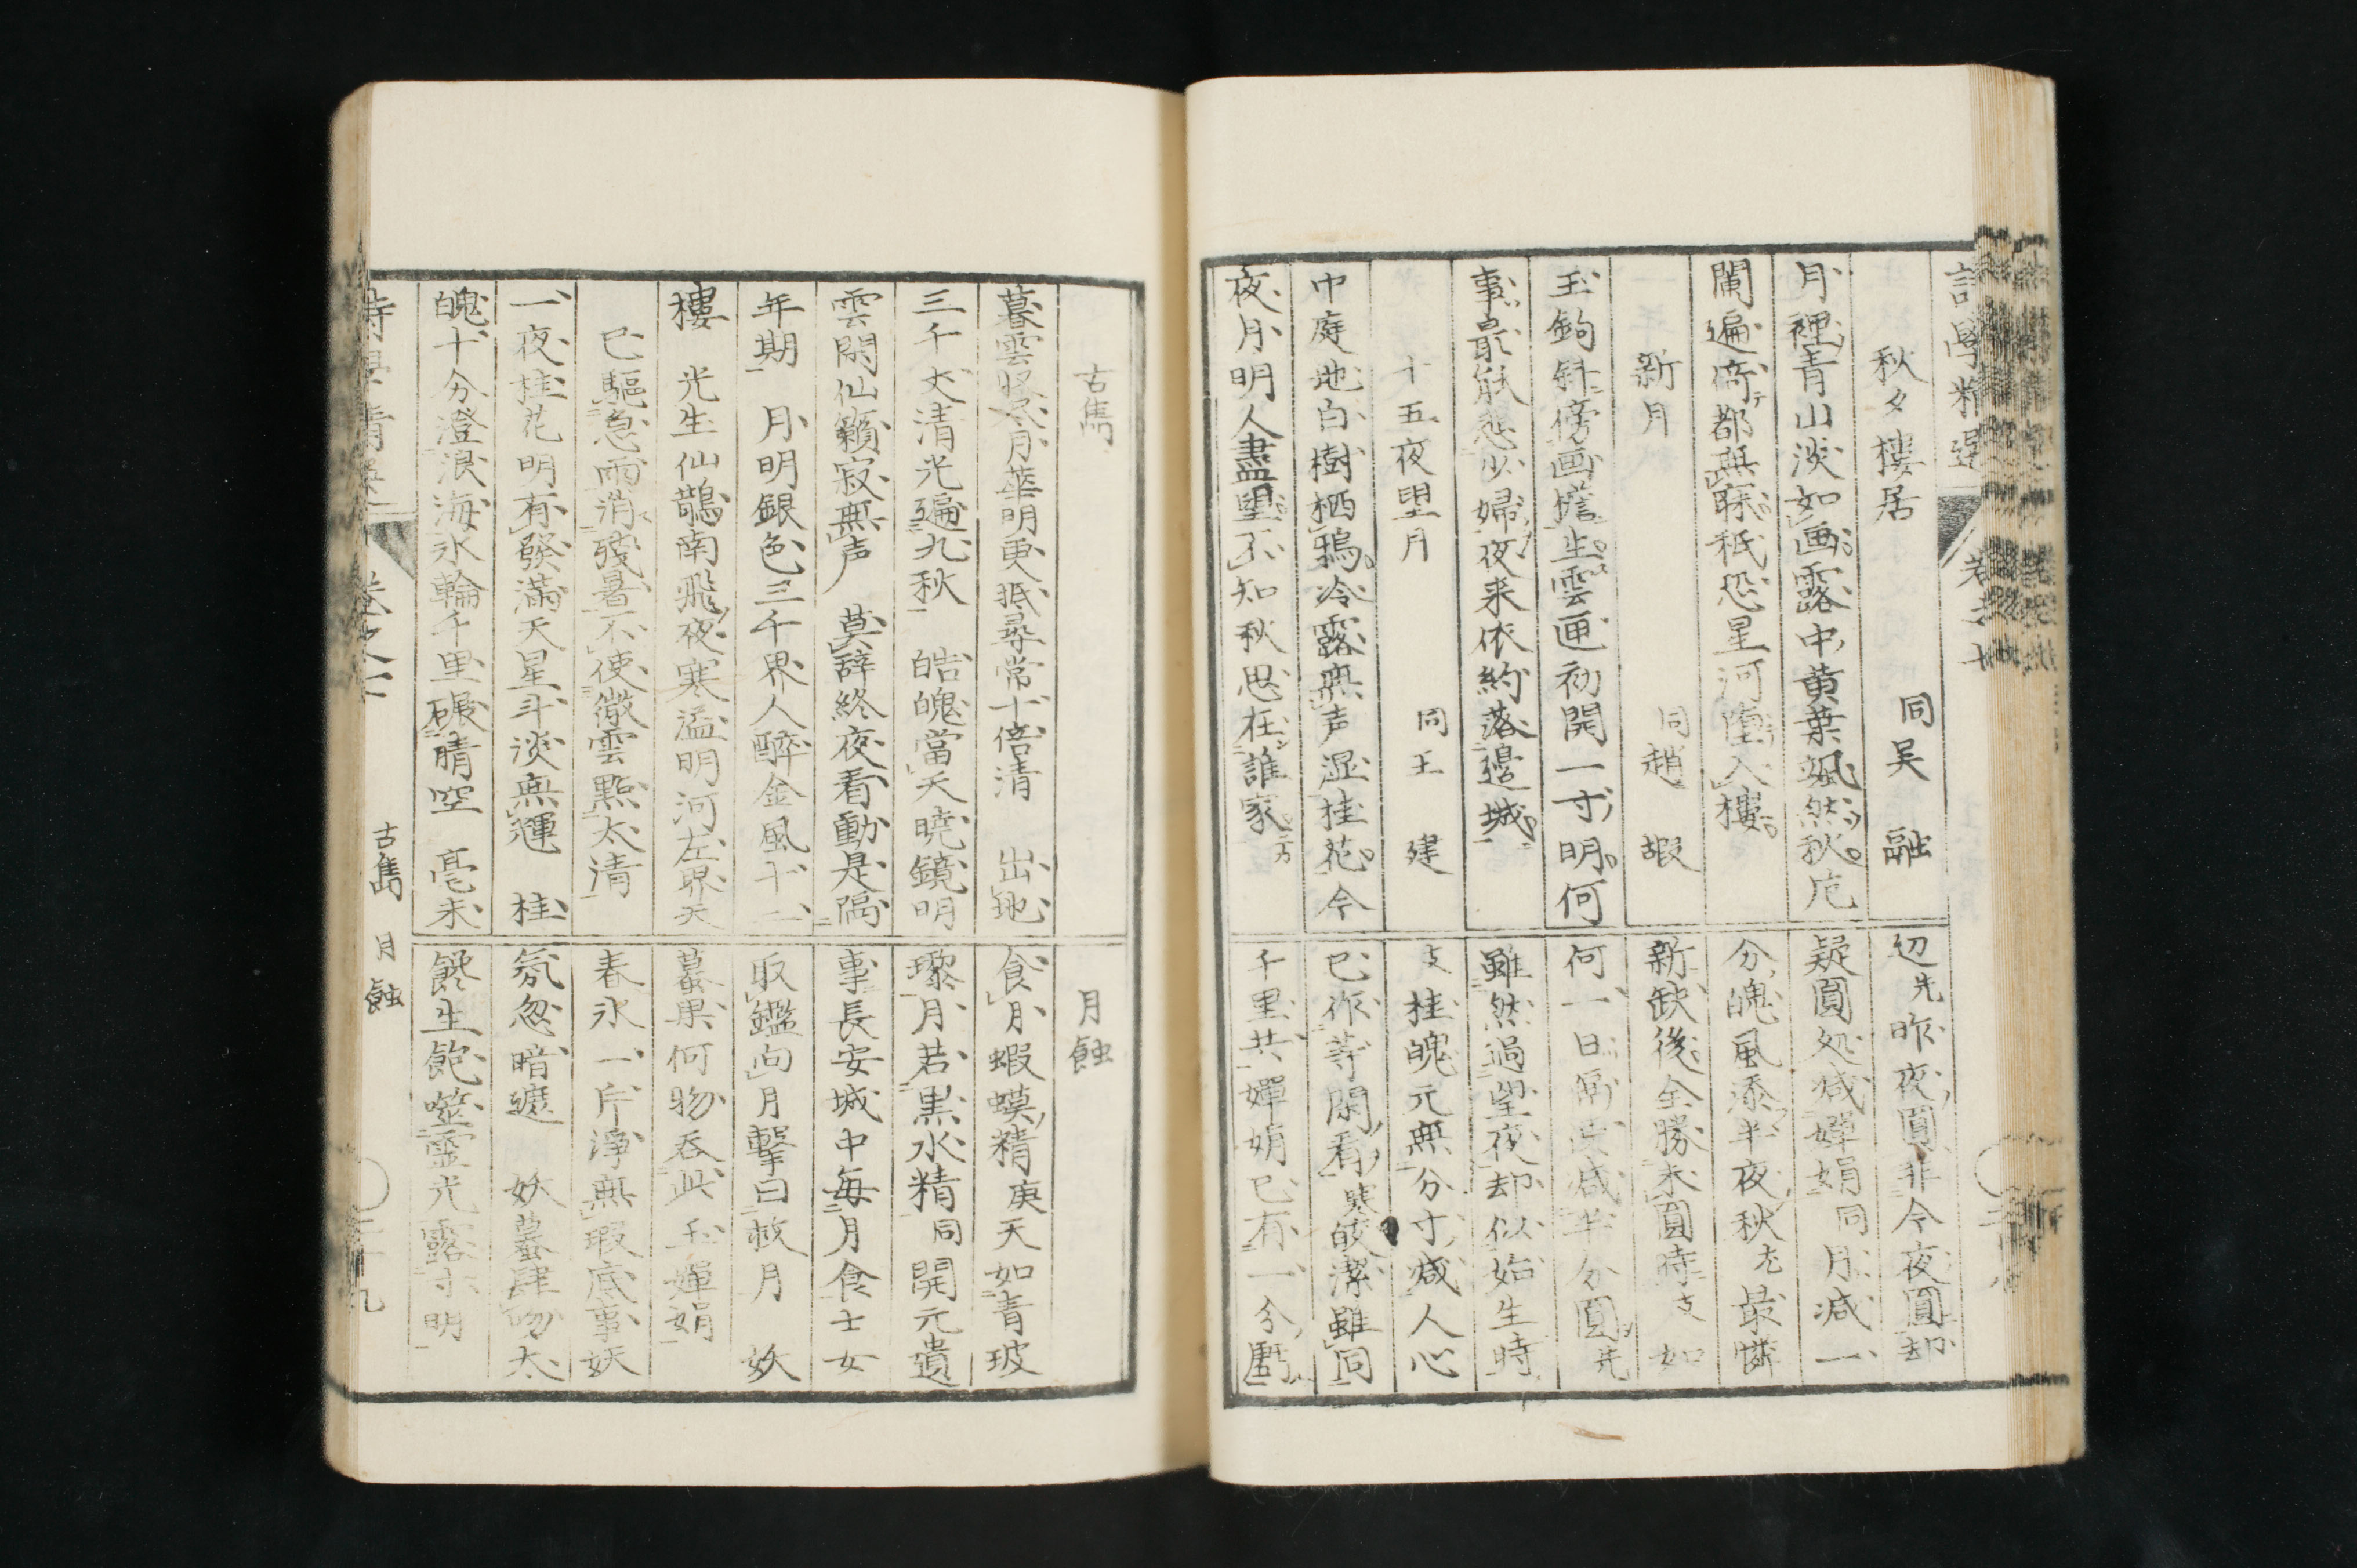 秋夕樓居
同吴融
月裡青山淡如画露中黄葉颯然秋危
闌遍倚都無寐秖恐星河堕入樓
新月
同趙嘏
玉鉤斜傍画檐生雲匣初開一寸明何
事最能悲少婦夜来依約落邊城
十五夜望月
同王建
中庭地白樹栖鴉冷露無声湿桂花今
夜月明人盡望不知秋思在誰家
辺先昨夜圓非今夜圓却
疑圓処减嬋娟同月减一
分魄風添半夜秋尤最憐
新缺後全勝未圓時支如
何一日
减半分圓先
雖然過望夜却似始生時
支桂魄元無分寸减人心
已作等閑看寒皎潔雖同
千里共嬋娟已有一分虧
古雋
暮雲將尽月華明更抵尋常十倍清 出地
三千丈清光遍九秋 皓魄當天曉鏡明
雲閑仙籟寂無声 莫辞終夜看動是隔
年期 月明銀色三千界人醉金風十二
樓 光生仙鵲南飛夜寒溢明河左界天
已驅急雨消残暑不使微雲點太清
一夜桂花明有發滿天星斗淡無輝 桂
魄十分澄浪海氷輪千里碾晴空 亳末
月蝕
食月蝦蟆精庚天如青玻
瓈月若黒水精同開元遺
事長安城中毎月食士女
取鑑向月撃曰救月 妖
蟇果何物吞此玉嬋娟
春氷一片淨無瑕底事妖
氛忽暗遮 妖蟇肆吻太
饞生飽噬霊光露寸明
古雋 月蝕